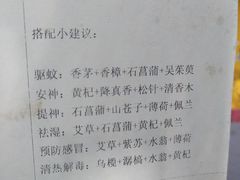 搭配小建议：
驱蚊：香茅+香樟+石菖蒲+吴茱萸
安神：黄杞+降真香+松针+清香木
提神：石菖蒲+山苍子+薄荷+佩兰
祛湿：艾草+石菖蒲+黄杞+佩兰
预防感冒：艾草+紫苏+水翁+薄荷
清热解毒：乌榄+潺槁+水翁+黄杞